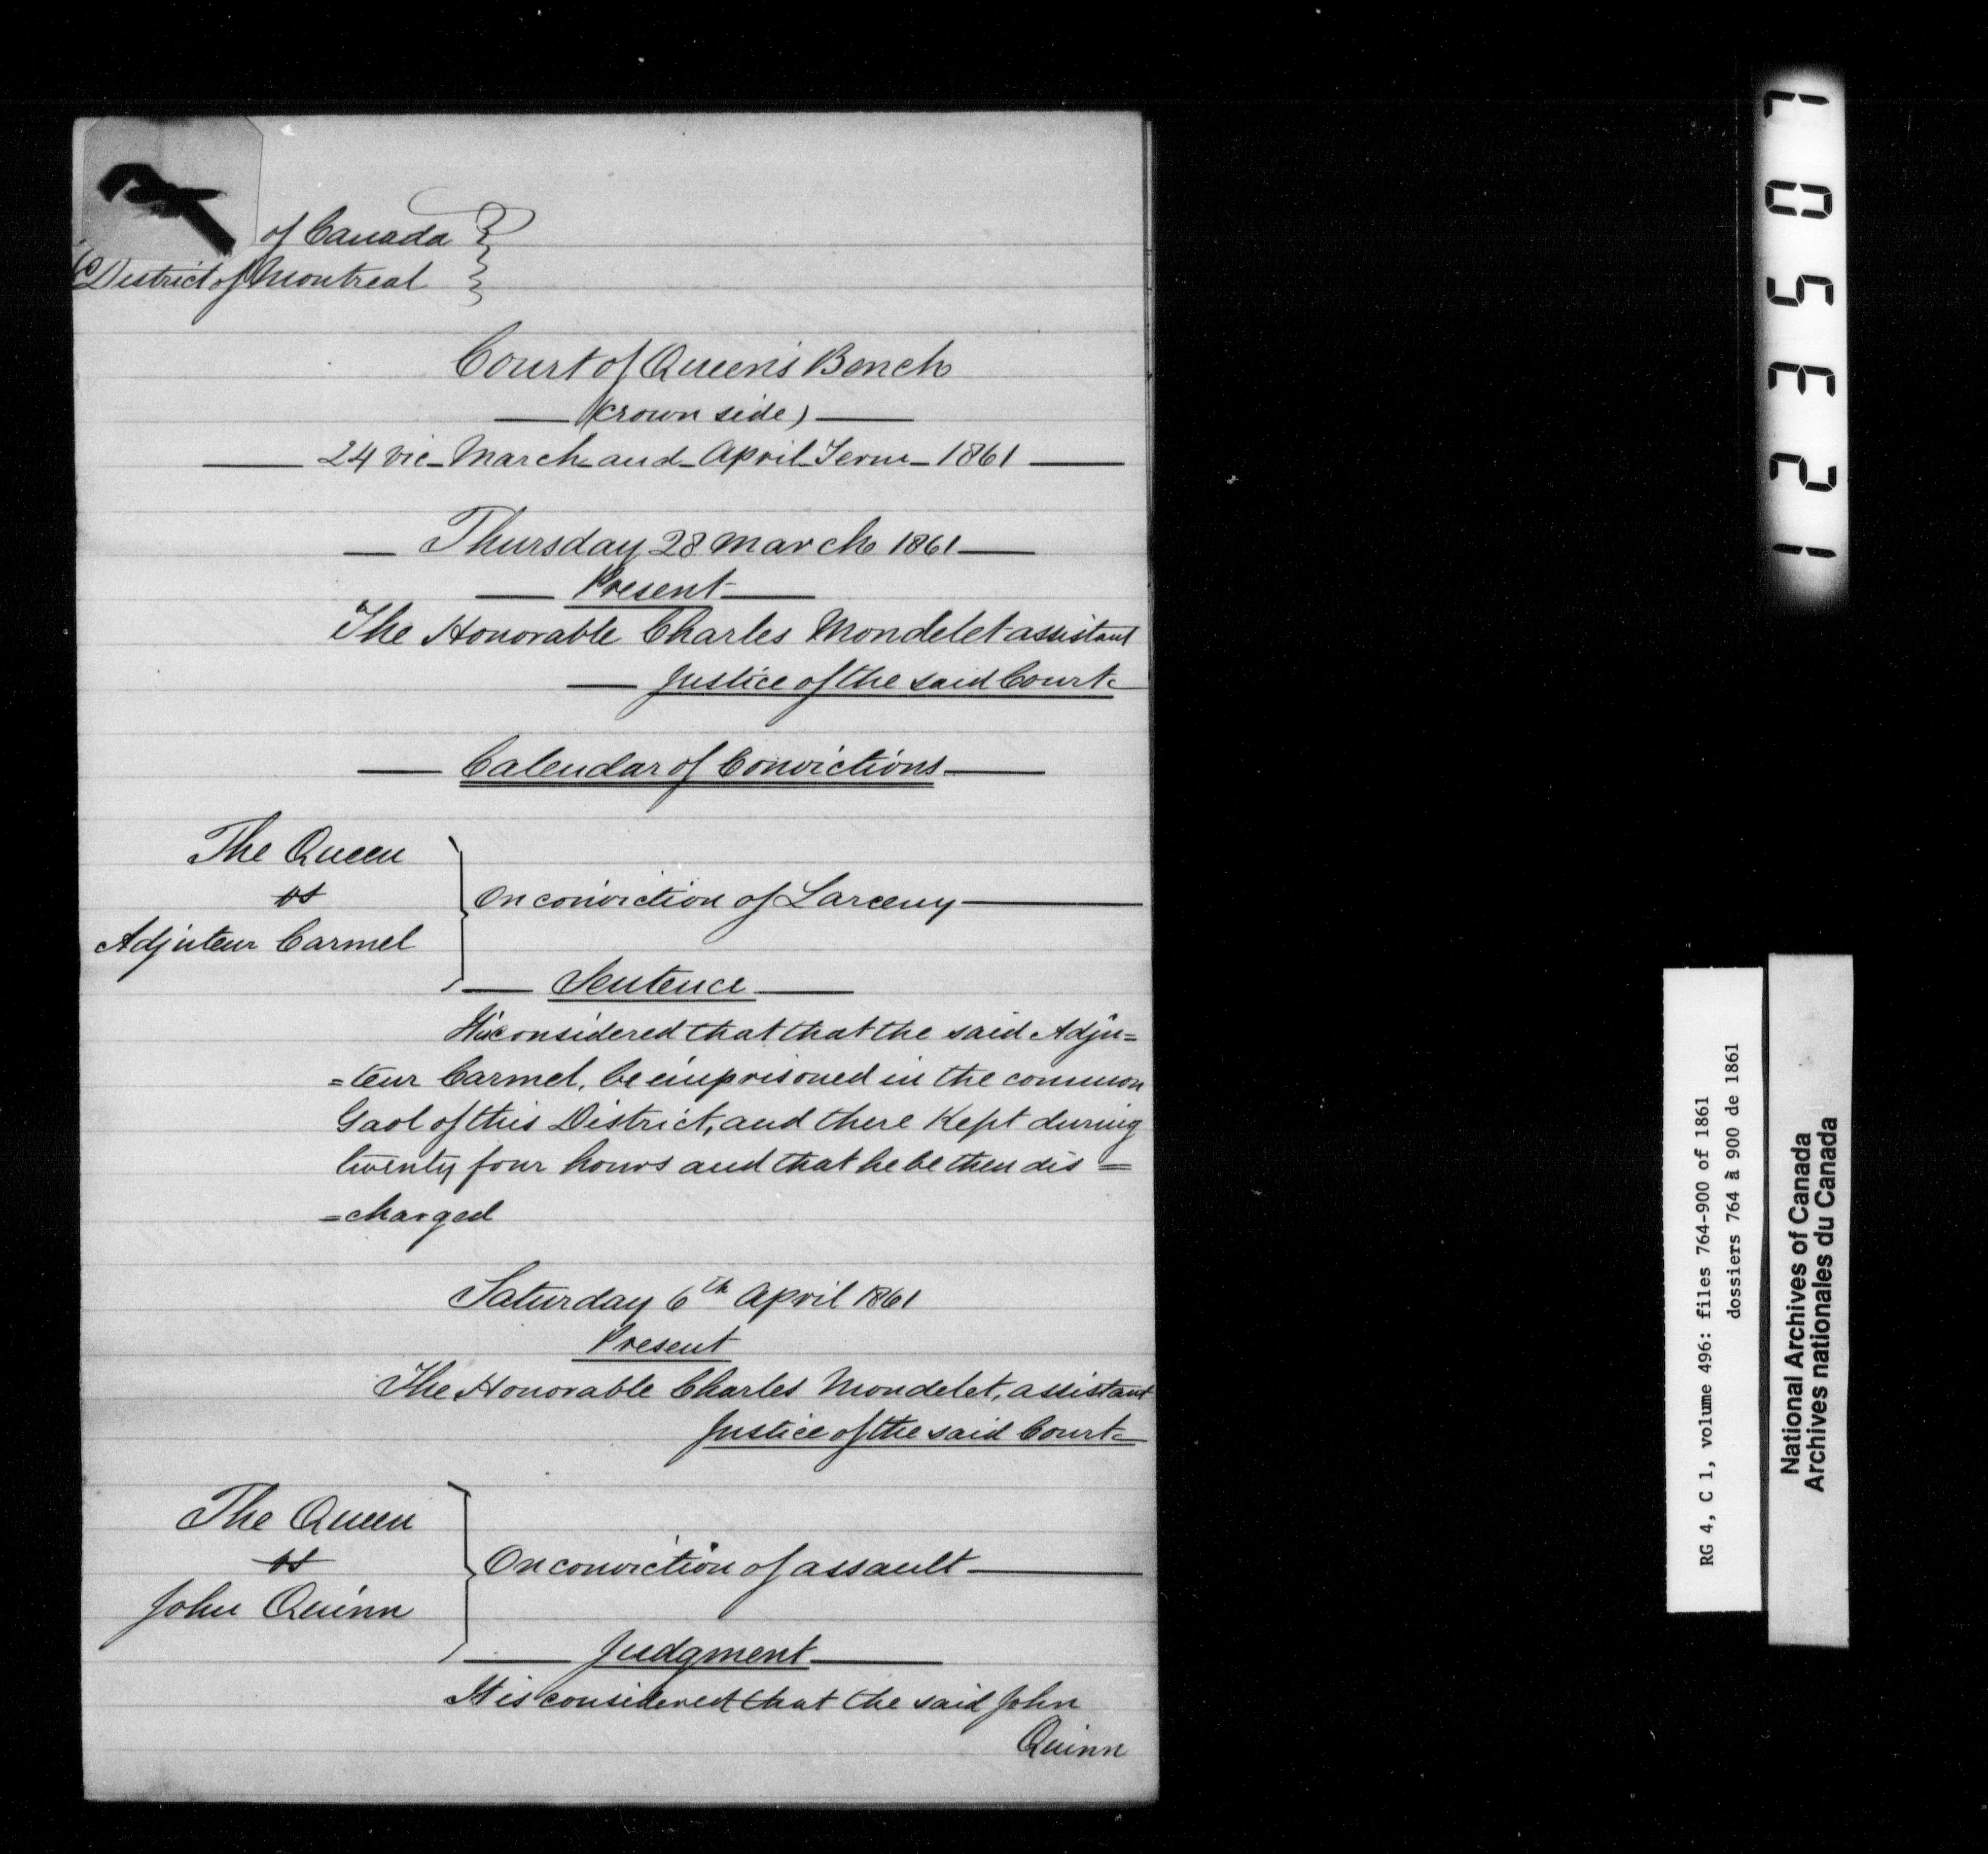 of Canada
District of Montreal
Court of Queen's Bench
(crown side)
24 Vic - March and April Term - 1861
Thursday 28 March 1861
Present
The Honorable Charles Mondelet assistant
Justice of the said Court
Calendar of Convictions
The Queen
vs
Adjuteur Carmel
On conviction of Larceny
Sentence
It is considered that that the said Adju=
=teur Carmel, be imprisoned in the common
Gaol of this District, and there Kept during
twenty four hours and that he be then dis=
=charged
Saturday 6th April 1861
Present
The Honorable Charles Mondelet, assistant
Justice of the said Court
The Queen
vs
John Quinn
On conviction of assault
Judgment
It is considered that the said John
Quinn
123507
RG 4, C 1, volume 496: files 764-900 of 1861
dossiers 764 à 900 de 1861
National Archives of Canada
Archives nationales du Canada